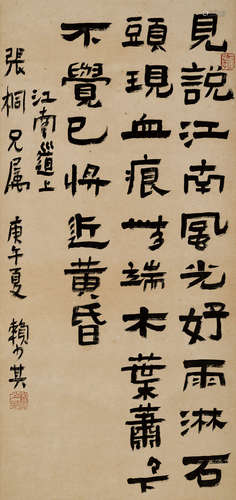 見說江南風光好雨淋石
頭現血痕無端木葉蕭〻下
不覺已將近黃昏
江南道上
張桐兄屬
庚午夏 賴少其